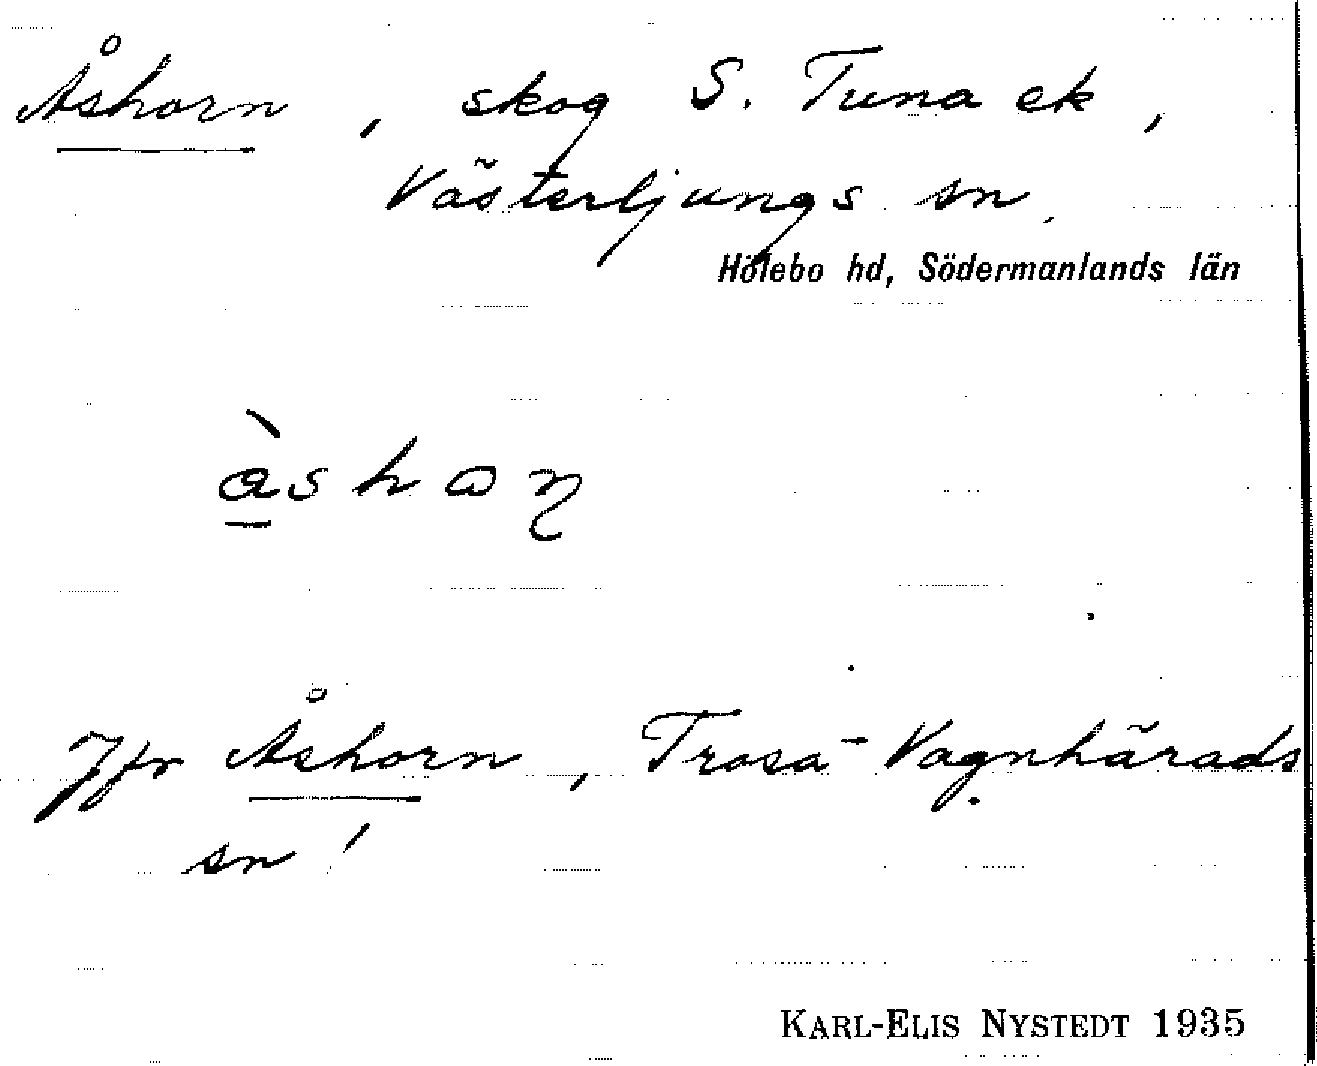 Åshorn, skog S. Tuna ek,
Västerljungs sn.
Hölebo hd, Södermanlands län
àshoɳ
Jfr Åshorn, Trosa-Vagnhärads
sn!
KARL-ELIS NYSTEDT 1935